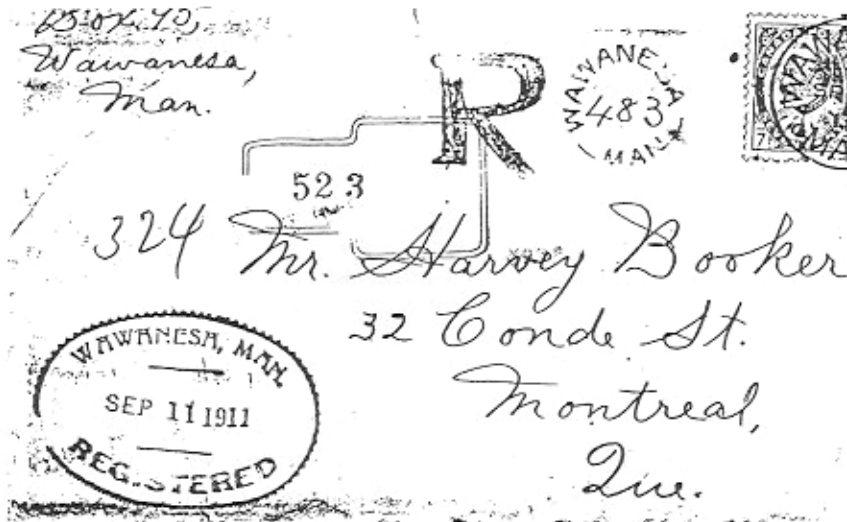 Box 40,
Wawanesa,
Man.
R
WAWANESA
483
MAN
7
523
324 Mr. Harvey Booker
32 Conde St.
Montreal,
Que.
WAWANESA, MAN.
SEP 11 1911
REGISTERED